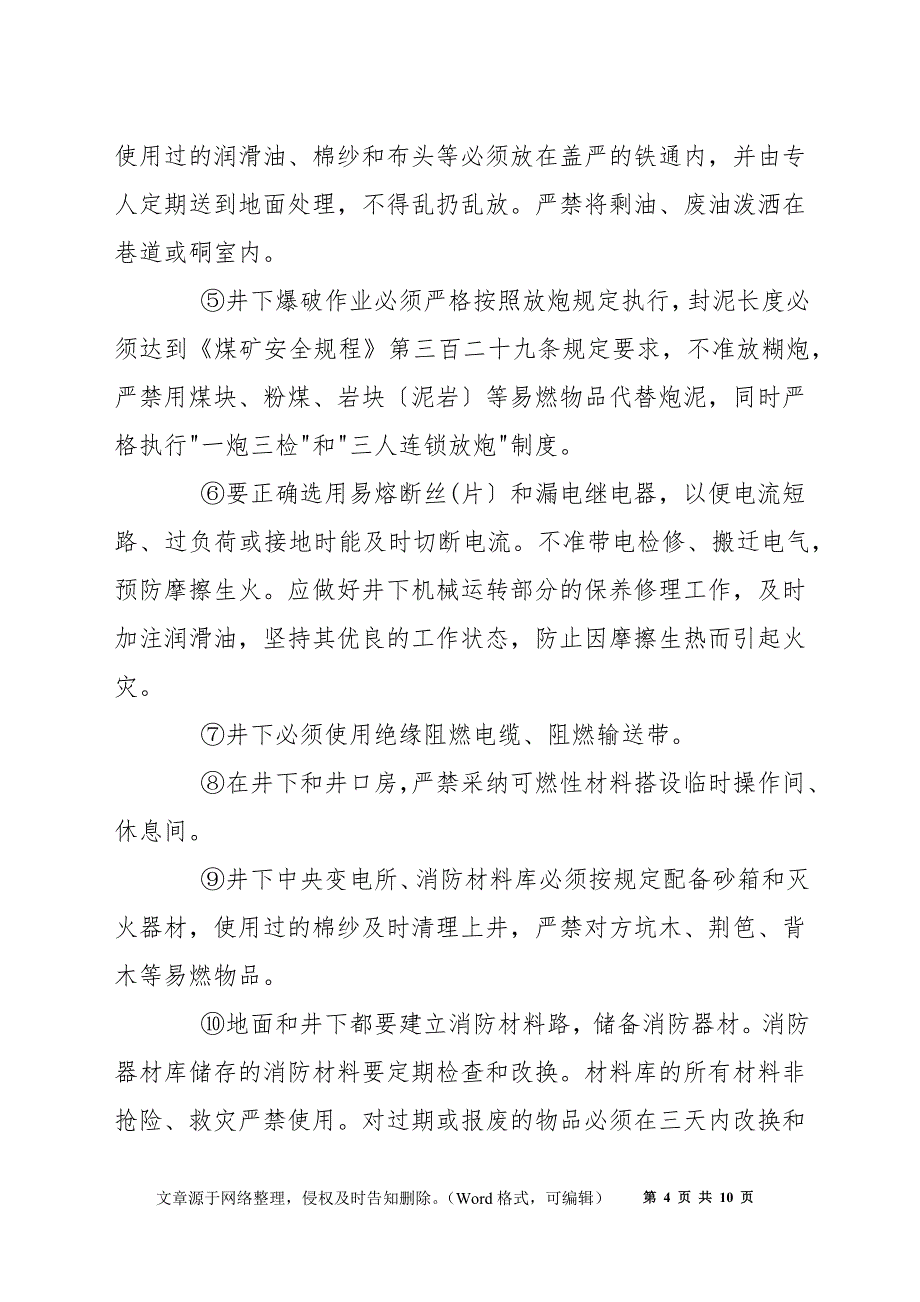 使用过的润滑油、棉纱和布头等必须放在盖严的铁通内，并由专
人定期送到地面处理，不得乱扔乱放。严禁将剩油、废油泼洒在
巷道或硐室内。
⑤井下爆破作业必须严格按照放炮规定执行，封泥长度必
须达到《煤矿安全规程》第三百二十九条规定要求，不准放糊炮，
严禁用煤块、粉煤、岩块〔泥岩〕等易燃物品代替炮泥，同时严
格执行"一炮三检"和"三人连锁放炮"制度。
⑥要正确选用易熔断丝(片〕和漏电继电器，以便电流短
路、过负荷或接地时能及时切断电流。不准带电检修、搬迁电气，
预防摩擦生火。应做好井下机械运转部分的保养修理工作，及时
加注润滑油，坚持其优良的工作状态，防止因摩擦生热而引起火
灾。
⑦井下必须使用绝缘阻燃电缆、阻燃输送带。
⑧在井下和井口房，严禁采纳可燃性材料搭设临时操作间、
休息间。
⑨井下中央变电所、消防材料库必须按规定配备砂箱和灭
火器材，使用过的棉纱及时清理上井，严禁对方坑木、荆笆、背
木等易燃物品。
⑩地面和井下都要建立消防材料路，储备消防器材。消防
器材库储存的消防材料要定期检查和改换。材料库的所有材料非
抢险、救灾严禁使用。对过期或报废的物品必须在三天内改换和
文章源于网络整理，侵权及时告知删除。（Word 格式，可编辑） 第 4 页 共 10 页